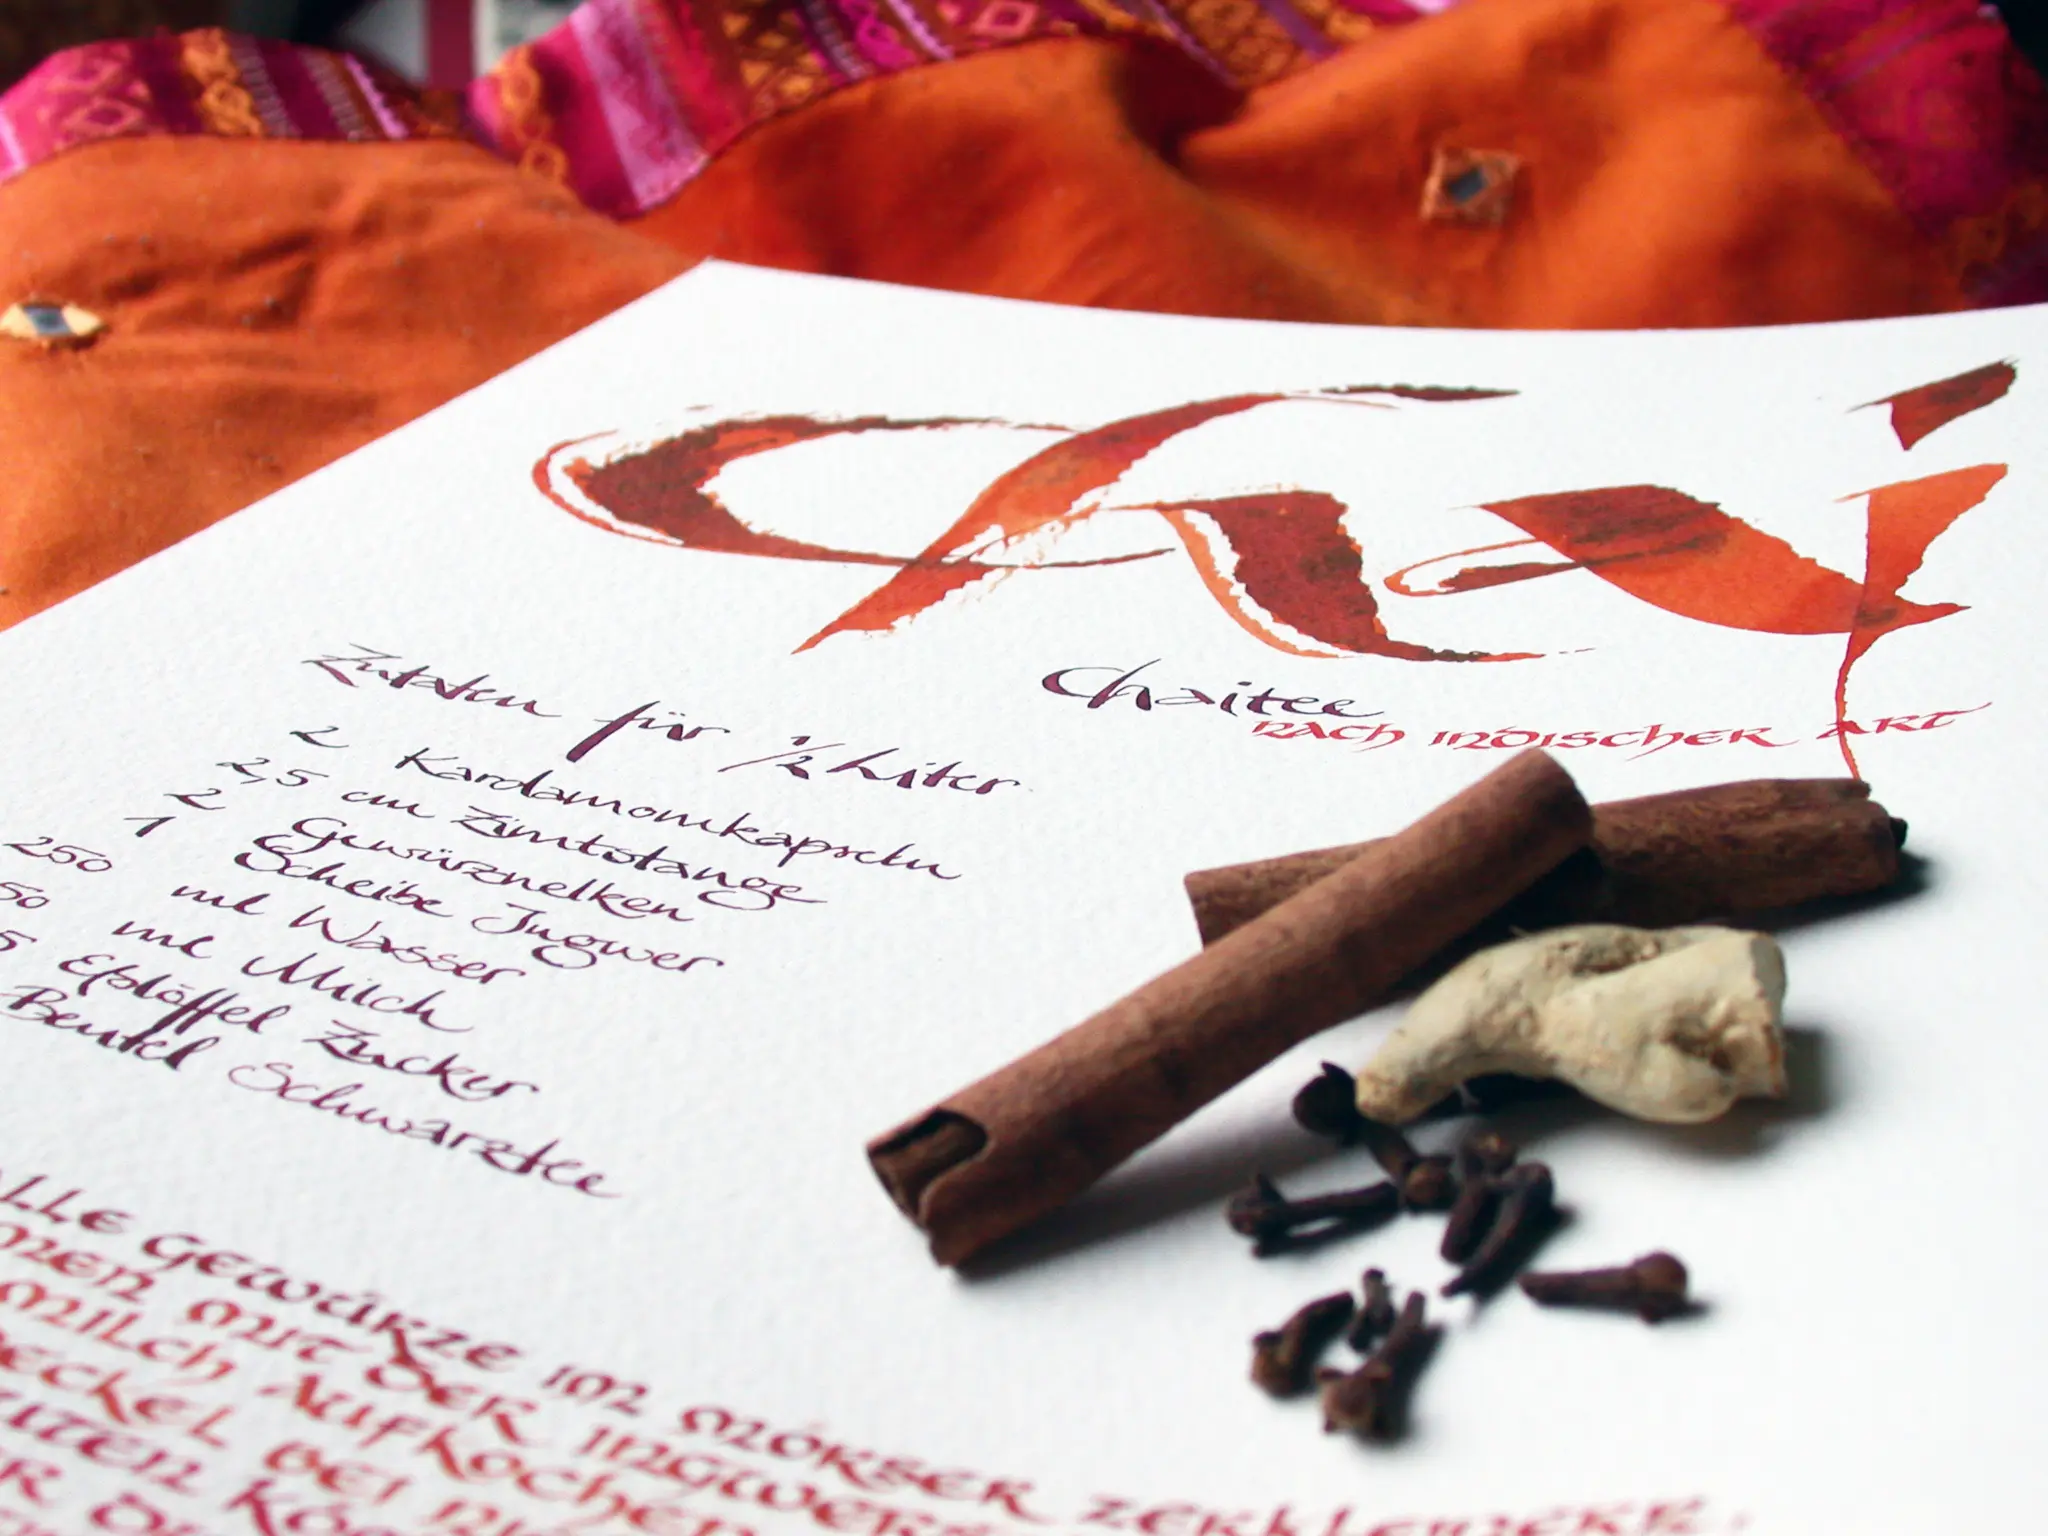 Chai
Chaitee
nach indischer Art
Zutaten für 1/2 Liter
2 Kardamomkapseln
2,5 cm Zimtstange
2 Gewürznelken
1 Scheibe Ingwer
250 ml Wasser
50 ml Milch
5 Eßlöffel Zucker
Beutel Schwarztee
alle Gewürze im Mörser zerkleinern
men mit der Ingwer
Milch aufkochen
eckel bei
uten